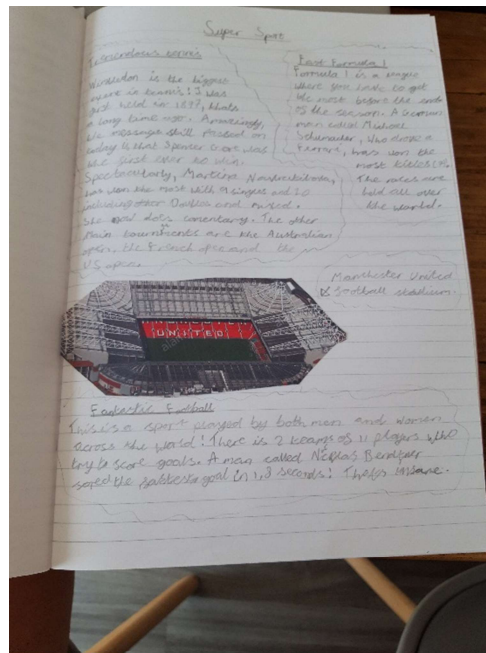 Super Sport
Tremendous tennis
Wimbledon is the biggest
event in tennis! It was
first held in 1877, thats
a long time ago. Amazingly,
the message still passed on
today is that Spencer Gore was
the first ever to win.
Spectacularly, Martina Navratilova,
has won the most with 9 singles and 20
including other Doubles and mixed.
She now does comentary. The other
Main tournments are the Australian
open, the French open and the
US open.
Fast Formula 1
Formula 1 is a league
where you have to get
the most before the end
of the season. A German
man called Michael
Schumacher, who drove a
Ferrari, has won the
most titles
The races are
held all over
the world.
Manchester United
football stadium.
UNITED
Fantastic Football
This is a sport played by both men and women
across the world! There is 2 teams of 11 players who
try to score goals. A man called Nicklas Bendtner
scored the fastest goal in 1,8 seconds! Thats insane.